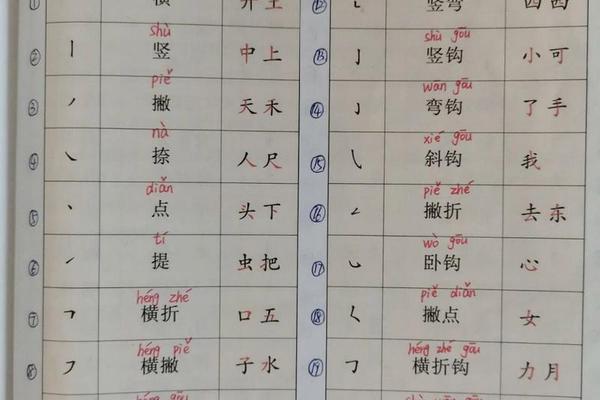 ① 横 开 王
② 丨 shù 竖 中 上
③ ㇒ piě 撇 天 禾
④ ㇏ nà 捺 人 尺
⑤ 丶 diǎn 点 头 下
⑥ ㇀ tí 提 虫 把
⑦ ㇕ héng zhé 横折 口 五
⑧ ㇇ héng piě 横撇 子 水
héng gōu
⑫ ㇄ 竖弯 四 西
⑬ 亅 shù gōu 竖钩 小 可
⑭ ㇁ wān gōu 弯钩 了 手
⑮ ㇂ xié gōu 斜钩 我
⑯ ㇜ piě zhé 撇折 去 东
⑰ ㇃ wò gōu 卧钩 心
⑱ ㇛ piě diǎn 撇点 女
⑲ ㇆ héng zhé gōu 横折钩 力 月